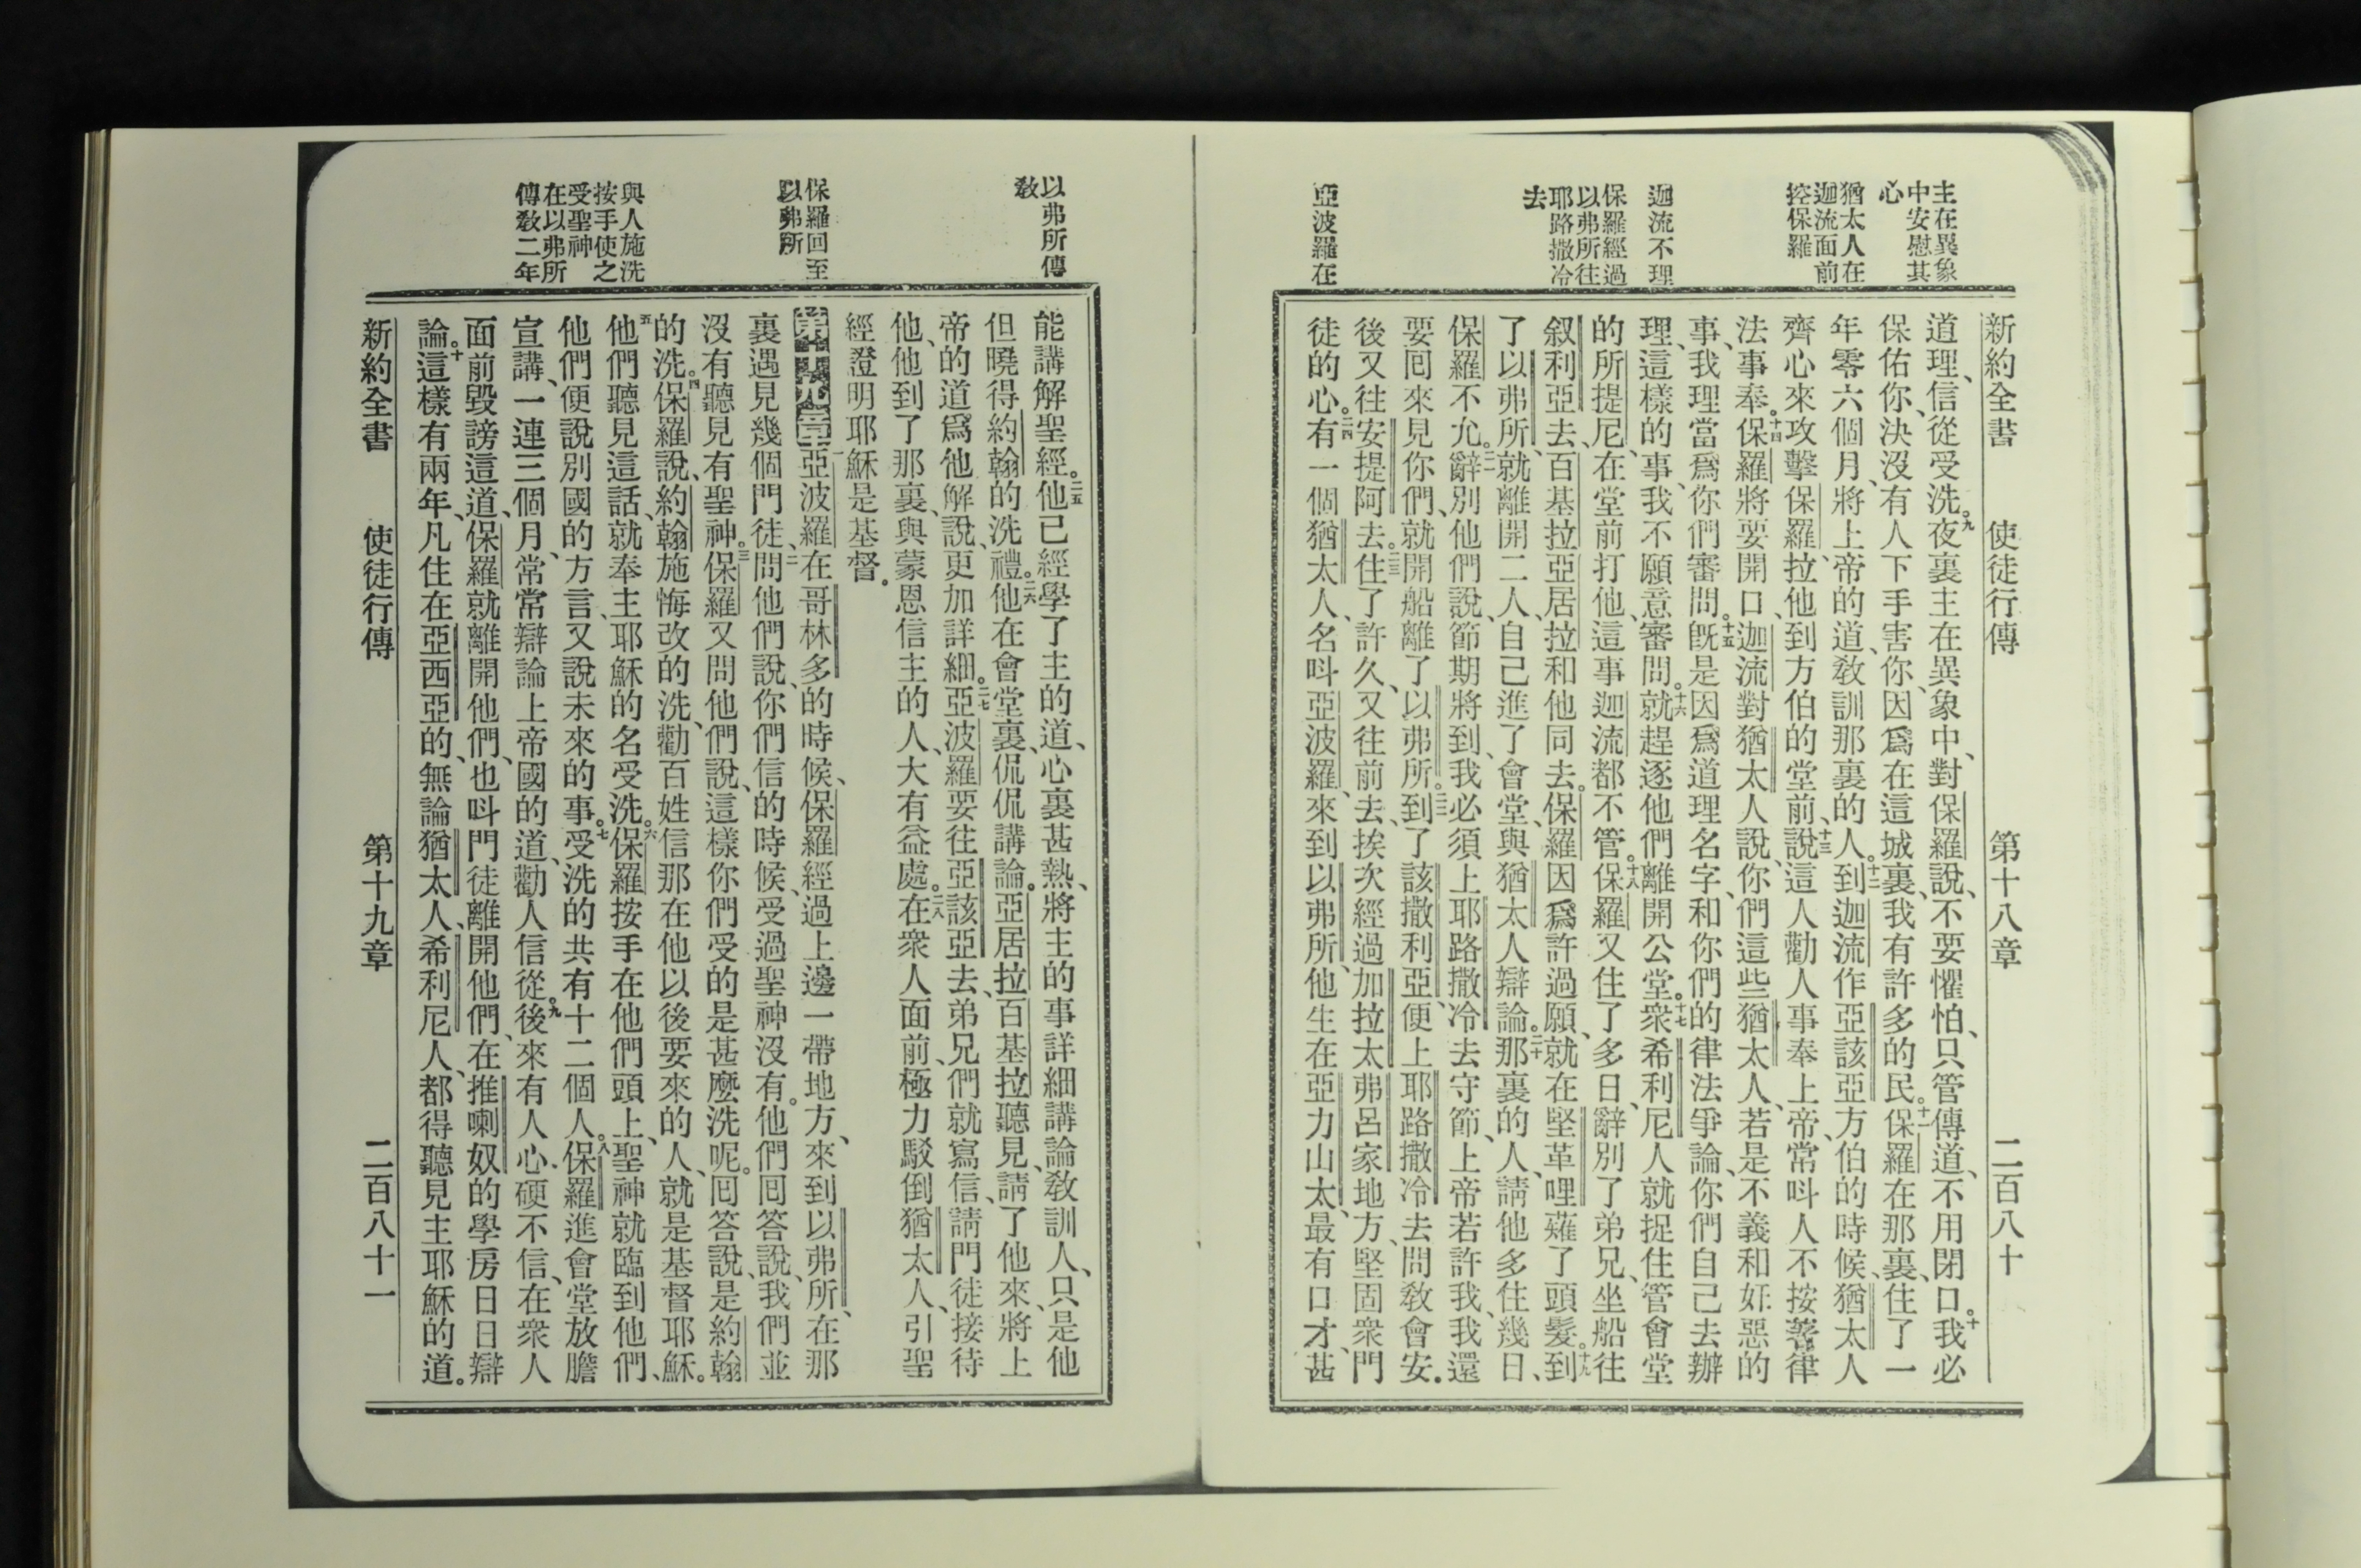 主在異象
中安慰其
心
猶太人在
迦流面前
控保羅
迦流不理
保羅經過
以弗所往
耶路撒冷
去
亞波羅在
新約全書 使徒行傳 第十八章 二百八十
道理、信從受洗。九夜裏主在異象中、對保羅說、不要懼怕、只管傳道、不用閉口。十我必
保佑你、決沒有人下手害你、因爲在這城裏、我有許多的民。十一保羅在那裏、住了一
年零六個月、將上帝的道、教訓那裏的人。十二到迦流作亞該亞方伯的時候、猶太人
齊心來攻擊保羅、拉他、到方伯的堂前、十三說、這人勸人事奉上帝、常呌人不按著律
法事奉。十四保羅將要開口、迦流對猶太人說、你們這些猶太人、若是不義和奸惡的
事、我理當爲你們審問。十五旣是因爲道理名字、和你們的律法爭論、你們自己去辦
理、這樣的事、我不願意審問。十六就趕逐他們離開公堂。十七衆希利尼人就捉住管會堂
的所提尼、在堂前打他、這事迦流都不管。十八保羅又住了多日、辭別了弟兄、坐船往
叙利亞去、百基拉亞居拉和他同去。保羅因爲許過願、就在堅革哩薙了頭髮。十九到
了以弗所、就離開二人、自己進了會堂、與猶太人辯論。二十那裏的人、請他多住幾日、
保羅不允。二一辭別他們說、節期將到、我必須上耶路撒冷去守節、上帝若許我、我還
要囘來見你們、就開船離了以弗所。二二到了該撒利亞、便上耶路撒冷去問教會安。
後又往安提阿去。二三住了許久、又往前去、挨次經過加拉太弗呂家地方、堅固衆門
徒的心。二四有一個猶太人、名呌亞波羅、來到以弗所、他生在亞力山太、最有口才、甚
以弗所傳
教
保羅回至
以弗所
與人施洗
按手使之
受聖神
在以弗所
傳教二年
能講解聖經。二五他已經學了主的道、心裏甚熱、將主的事詳細講論教訓人、只是他
但曉得約翰的洗禮。二六他在會堂裏、侃侃講論。亞居拉百基拉聽見、請了他來、將上
帝的道爲他解說、更加詳細。二七亞波羅要往亞該亞去、弟兄們就寫信、請門徒接待
他、他到了那裏、與蒙恩信主的人、大有益處。二八在衆人面前、極力駁倒猶太人、引聖
經證明耶穌是基督。
第十九章一亞波羅在哥林多的時候、保羅經過上邊一帶地方、來到以弗所、在那
裏遇見幾個門徒、二問他們說、你們信的時候、受過聖神沒有。他們囘答說、我們並
沒有聽見有聖神。三保羅又問他們說、這樣你們受的是甚麼洗呢。囘答說、是約翰
的洗。四保羅說、約翰施悔改的洗、勸百姓信那在他以後要來的人、就是基督耶穌。
五他們聽見這話、就奉主耶穌的名受洗。六保羅按手在他們頭上、聖神就臨到他們、
他們便說別國的方言、又說未來的事。七受洗的共有十二個人。八保羅進會堂放膽
宣講、一連三個月、常常辯論上帝國的道、勸人信從。九後來有人心硬不信、在衆人
面前毀謗這道、保羅就離開他們、也呌門徒離開他們、在推喇奴的學房日日辯
論。十這樣有兩年、凡住在亞西亞的、無論猶太人、希利尼人、都得聽見主耶穌的道。
新約全書 使徒行傳 第十九章 二百八十一